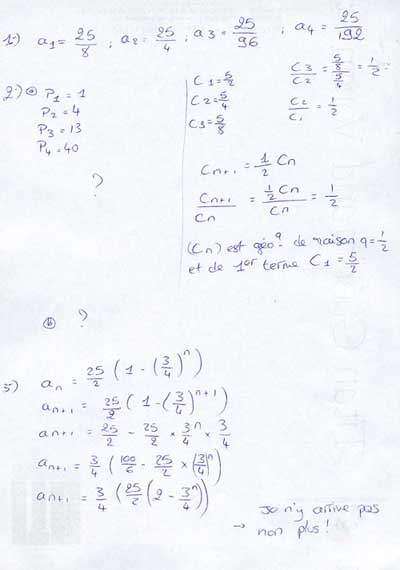 1°) a₁ = 25/8 ; a₂ = 25/4 ; a₃ = 25/96 ; a₄ = 25/192
2°) ⓐ P₁ = 1
P₂ = 4
P₃ = 13
P₄ = 40
?
C₁ = 5/2
C₂ = 5/4
C₃ = 5/8
C₃/C₂ = (5/8)/(5/4) = 1/2
C₂/C₁ = 1/2
Cₙ₊₁ = 1/2 Cₙ
Cₙ₊₁/Cₙ = (1/2 Cₙ)/Cₙ = 1/2
(Cₙ) est géoq. de raison q = 1/2
et de 1er terme C₁ = 5/2
ⓑ ?
5) aₙ = 25/2 (1 - (3/4)ⁿ)
aₙ₊₁ = 25/2 (1 - (3/4)ⁿ⁺¹)
aₙ₊₁ = 25/2 - 25/2 × 3/4ⁿ × 3/4
aₙ₊₁ = 3/4 (100/6 - 25/2 × (3/4)ⁿ)
aₙ₊₁ = 3/4 (25/2 (2 - 3/4ⁿ))
→ Je n'y arrive pas
non plus !